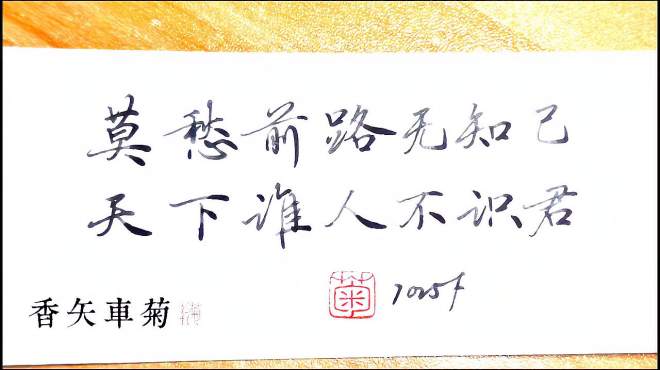 莫愁前路无知己
天下谁人不识君
菊
香矢車菊